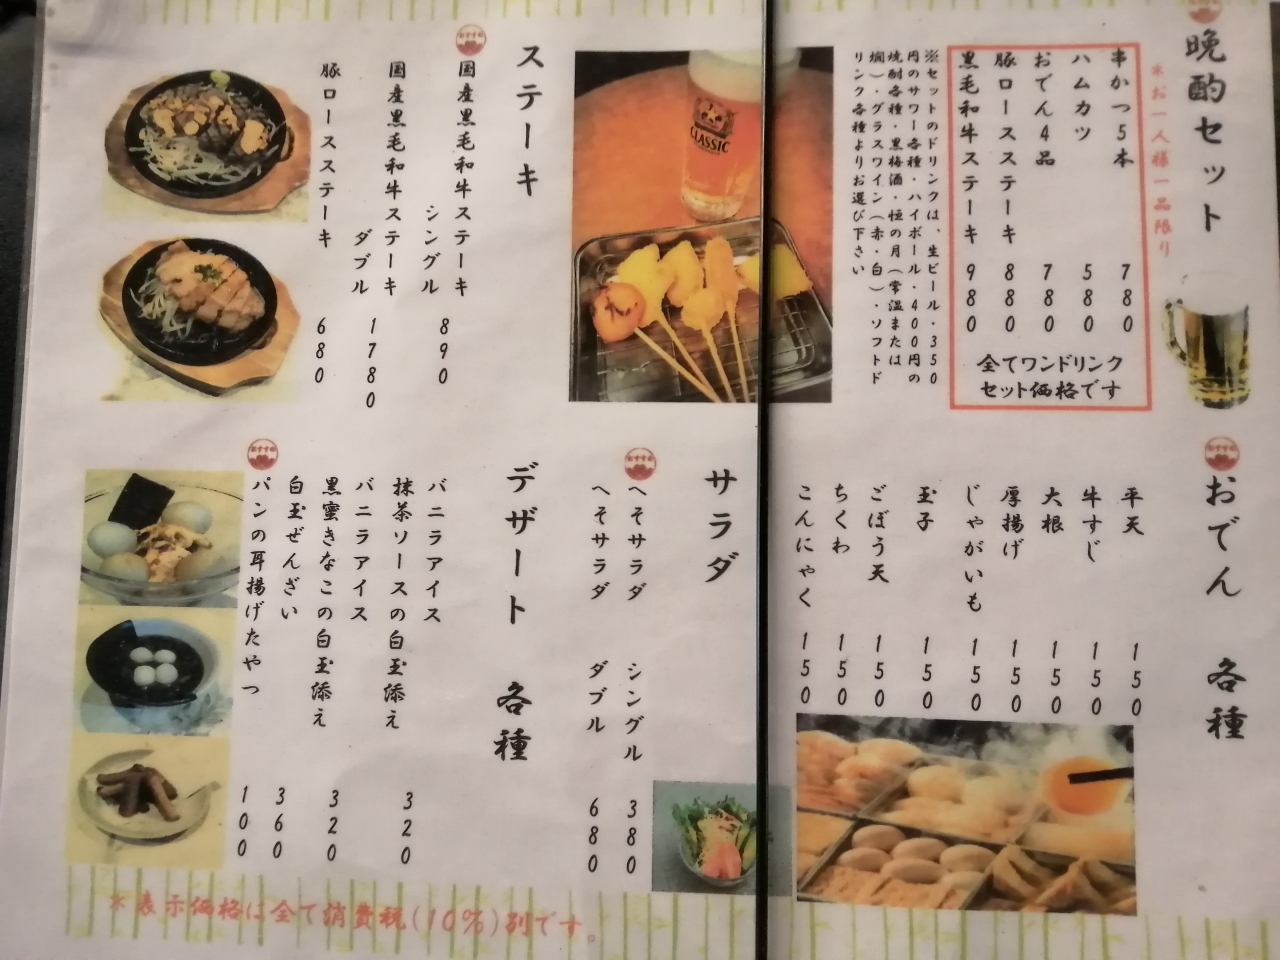 晩酌セット
※お一人様一品限り
串かつ5本 780
ハムカツ 580
おでん4品 780
豚ロースステーキ 880
黒毛和牛ステーキ 980
全てワンドリンク
セット価格です
※セットのドリンクは、生ビール・350
円のサワー各種・ハイボール・400円の
焼酎各種・黒梅酒・恒の月(常温または
燗)・グラスワイン(赤・白)・ソフトド
リンク各種よりお選び下さい
CLASSIC
ステーキ
おすすめ
国産黒毛和牛ステーキ
シングル 890
国産黒毛和牛ステーキ
ダブル 1780
豚ロースステーキ 680
おすすめ
おでん 各種
平天 150
牛すじ 150
大根 150
厚揚げ 150
じゃがいも 150
玉子 150
ごぼう天 150
ちくわ 150
こんにゃく 150
サラダ
おすすめ
へそサラダ シングル 380
へそサラダ ダブル 680
デザート 各種
バニラアイス
抹茶ソースの白玉添え 320
バニラアイス
黒蜜きなこの白玉添え 320
白玉ぜんざい 360
おすすめ
パンの耳揚げたやつ 100
※表示価格は全て消費税(10%)別です。